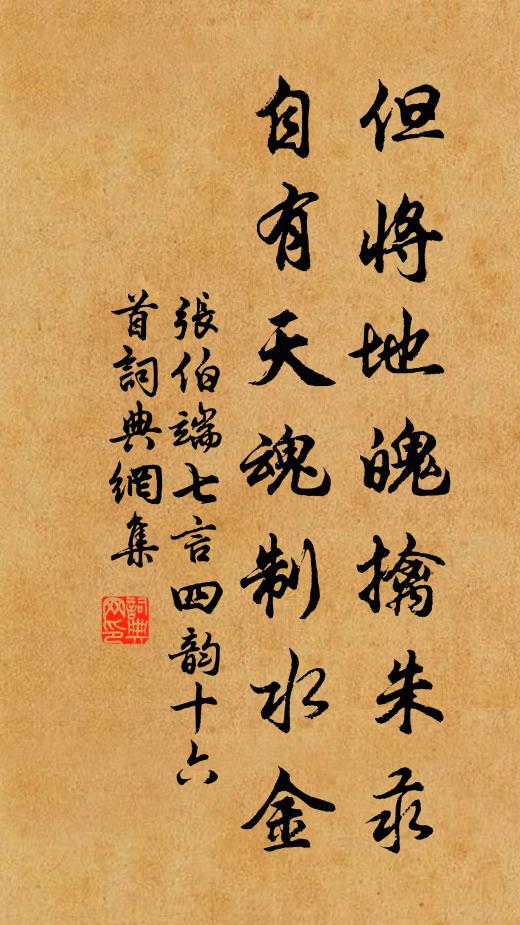 但將地魄擒朱汞
自有天魂制水金
張伯端七言四韵十六
首詞典網集
詞典
网印